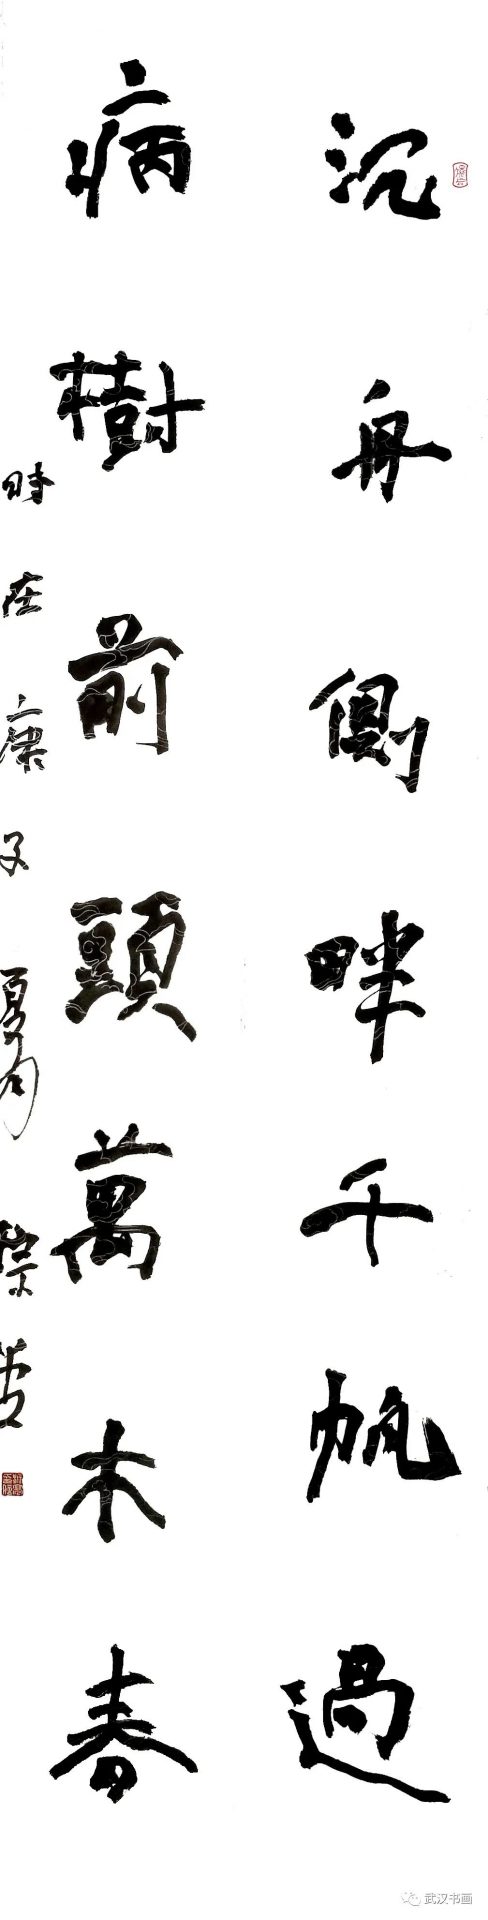 沉舟側畔千帆過
病樹前頭萬木春
時在庚子夏月
武汉书画